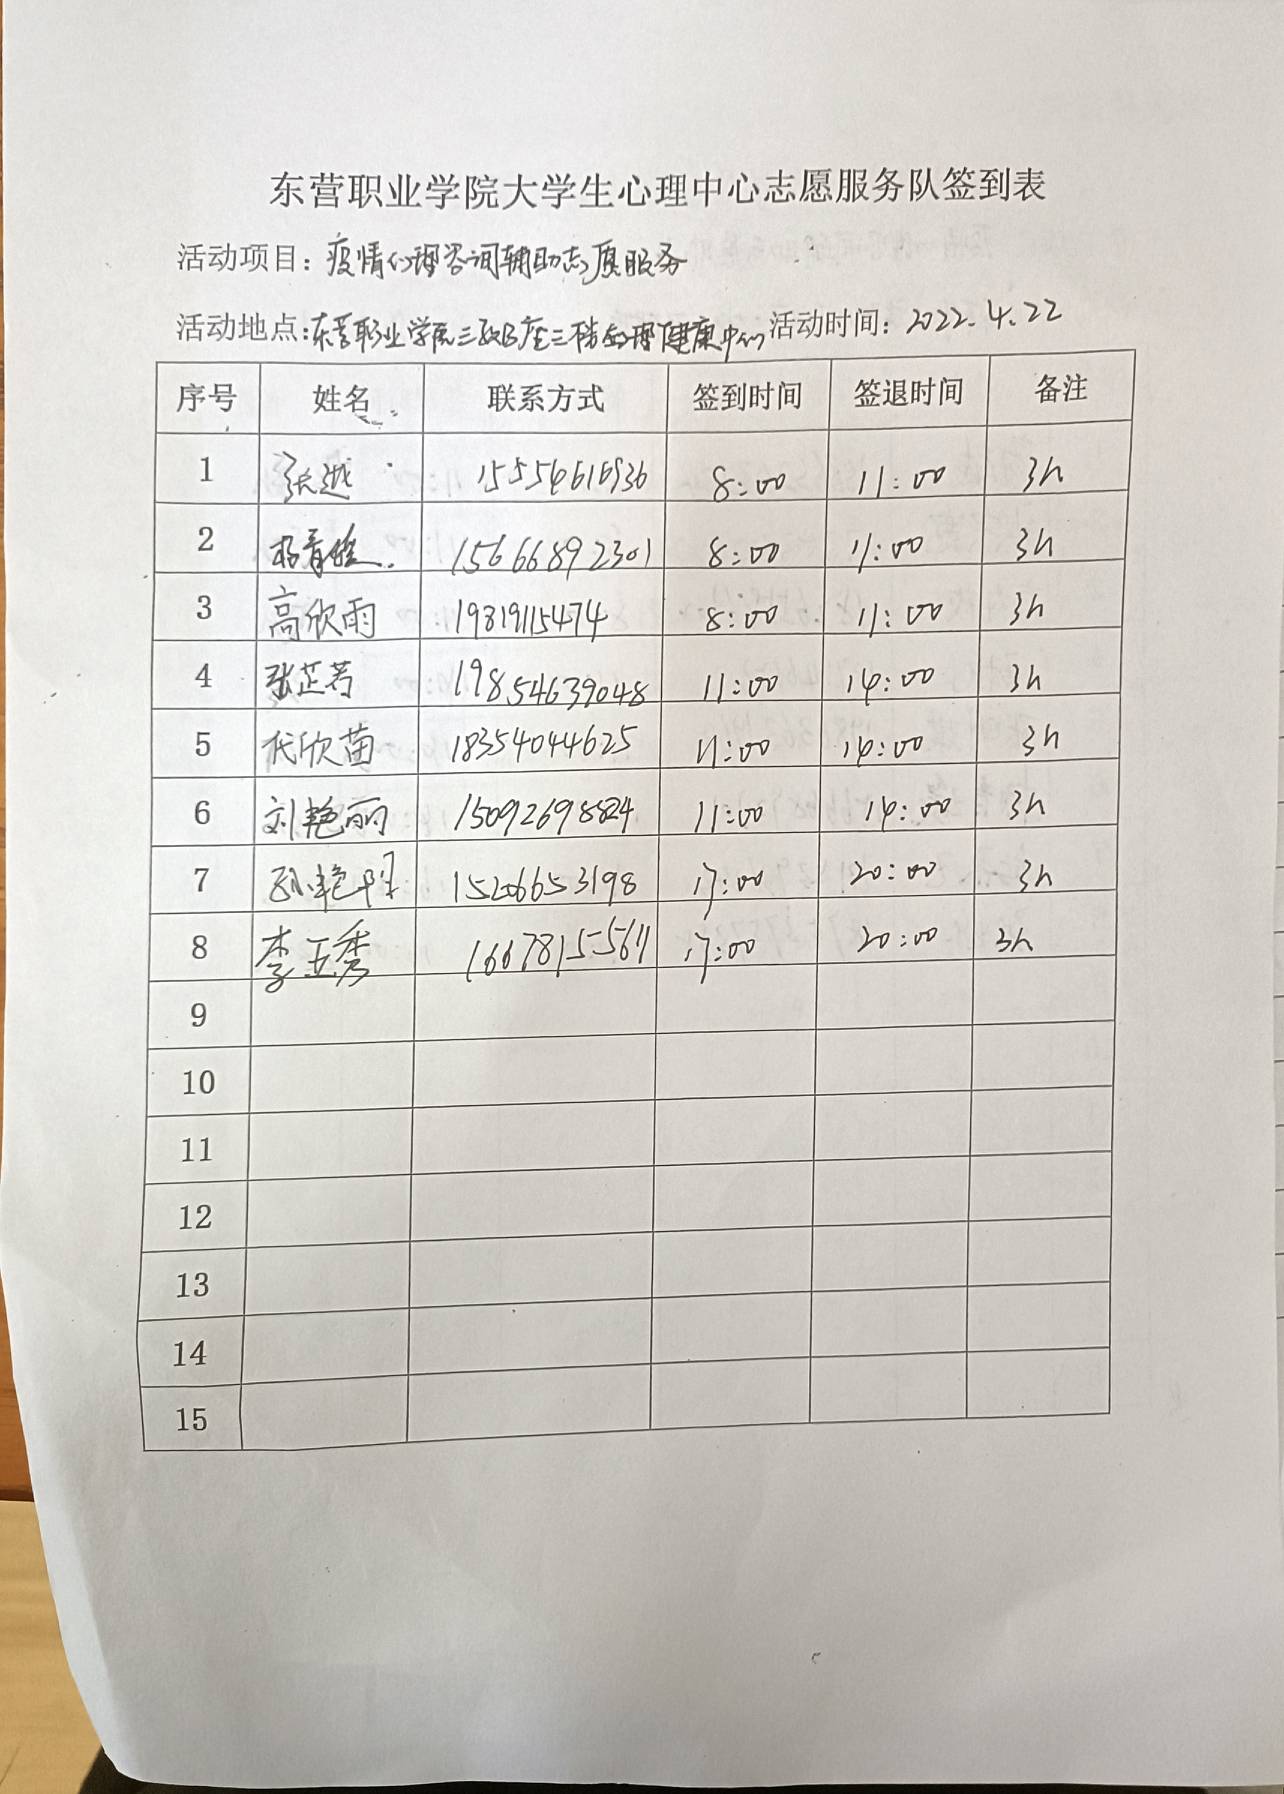 东营职业学院大学生心理中心志愿服务队签到表
活动项目：疫情心理咨询辅助志愿服务
活动地点：东营职业学院三教B座二楼心理健康中心 活动时间：2022.4.22
序号 姓名 联系方式 签到时间 签退时间 备注
1 张越 15554616936 8:00 11:00 3h
2 杨青 15666892301 8:00 11:00 3h
3 高欣雨 19819115474 8:00 11:00 3h
4 张芷若 19854639048 11:00 14:00 3h
5 代欣苗 18354044625 11:00 14:00 3h
6 刘艳丽 15092698824 11:00 14:00 3h
7 孙艳 15266653198 17:00 20:00 3h
8 李玉秀 16678155611 17:00 20:00 3h
9
10
11
12
13
14
15